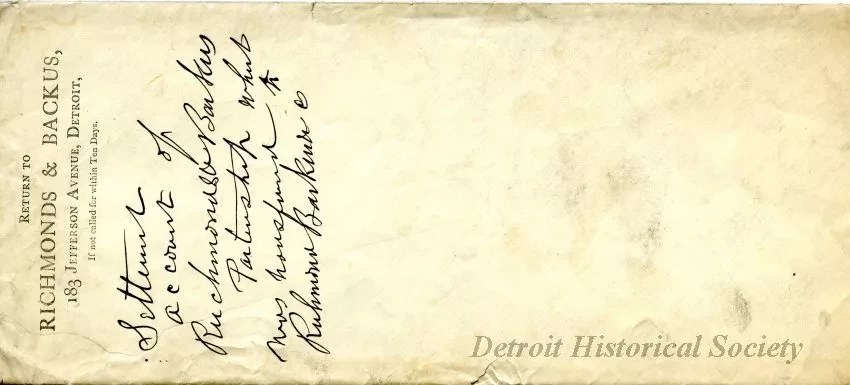 RETURN TO
RICHMONDS & BACKUS,
183 JEFFERSON AVENUE, DETROIT,
If not called for within Ten Days.
Settlemt
account of
Richmonds & Backus
Partnership what
was transferred to
Richmond Backus Co
Detroit Historical Society